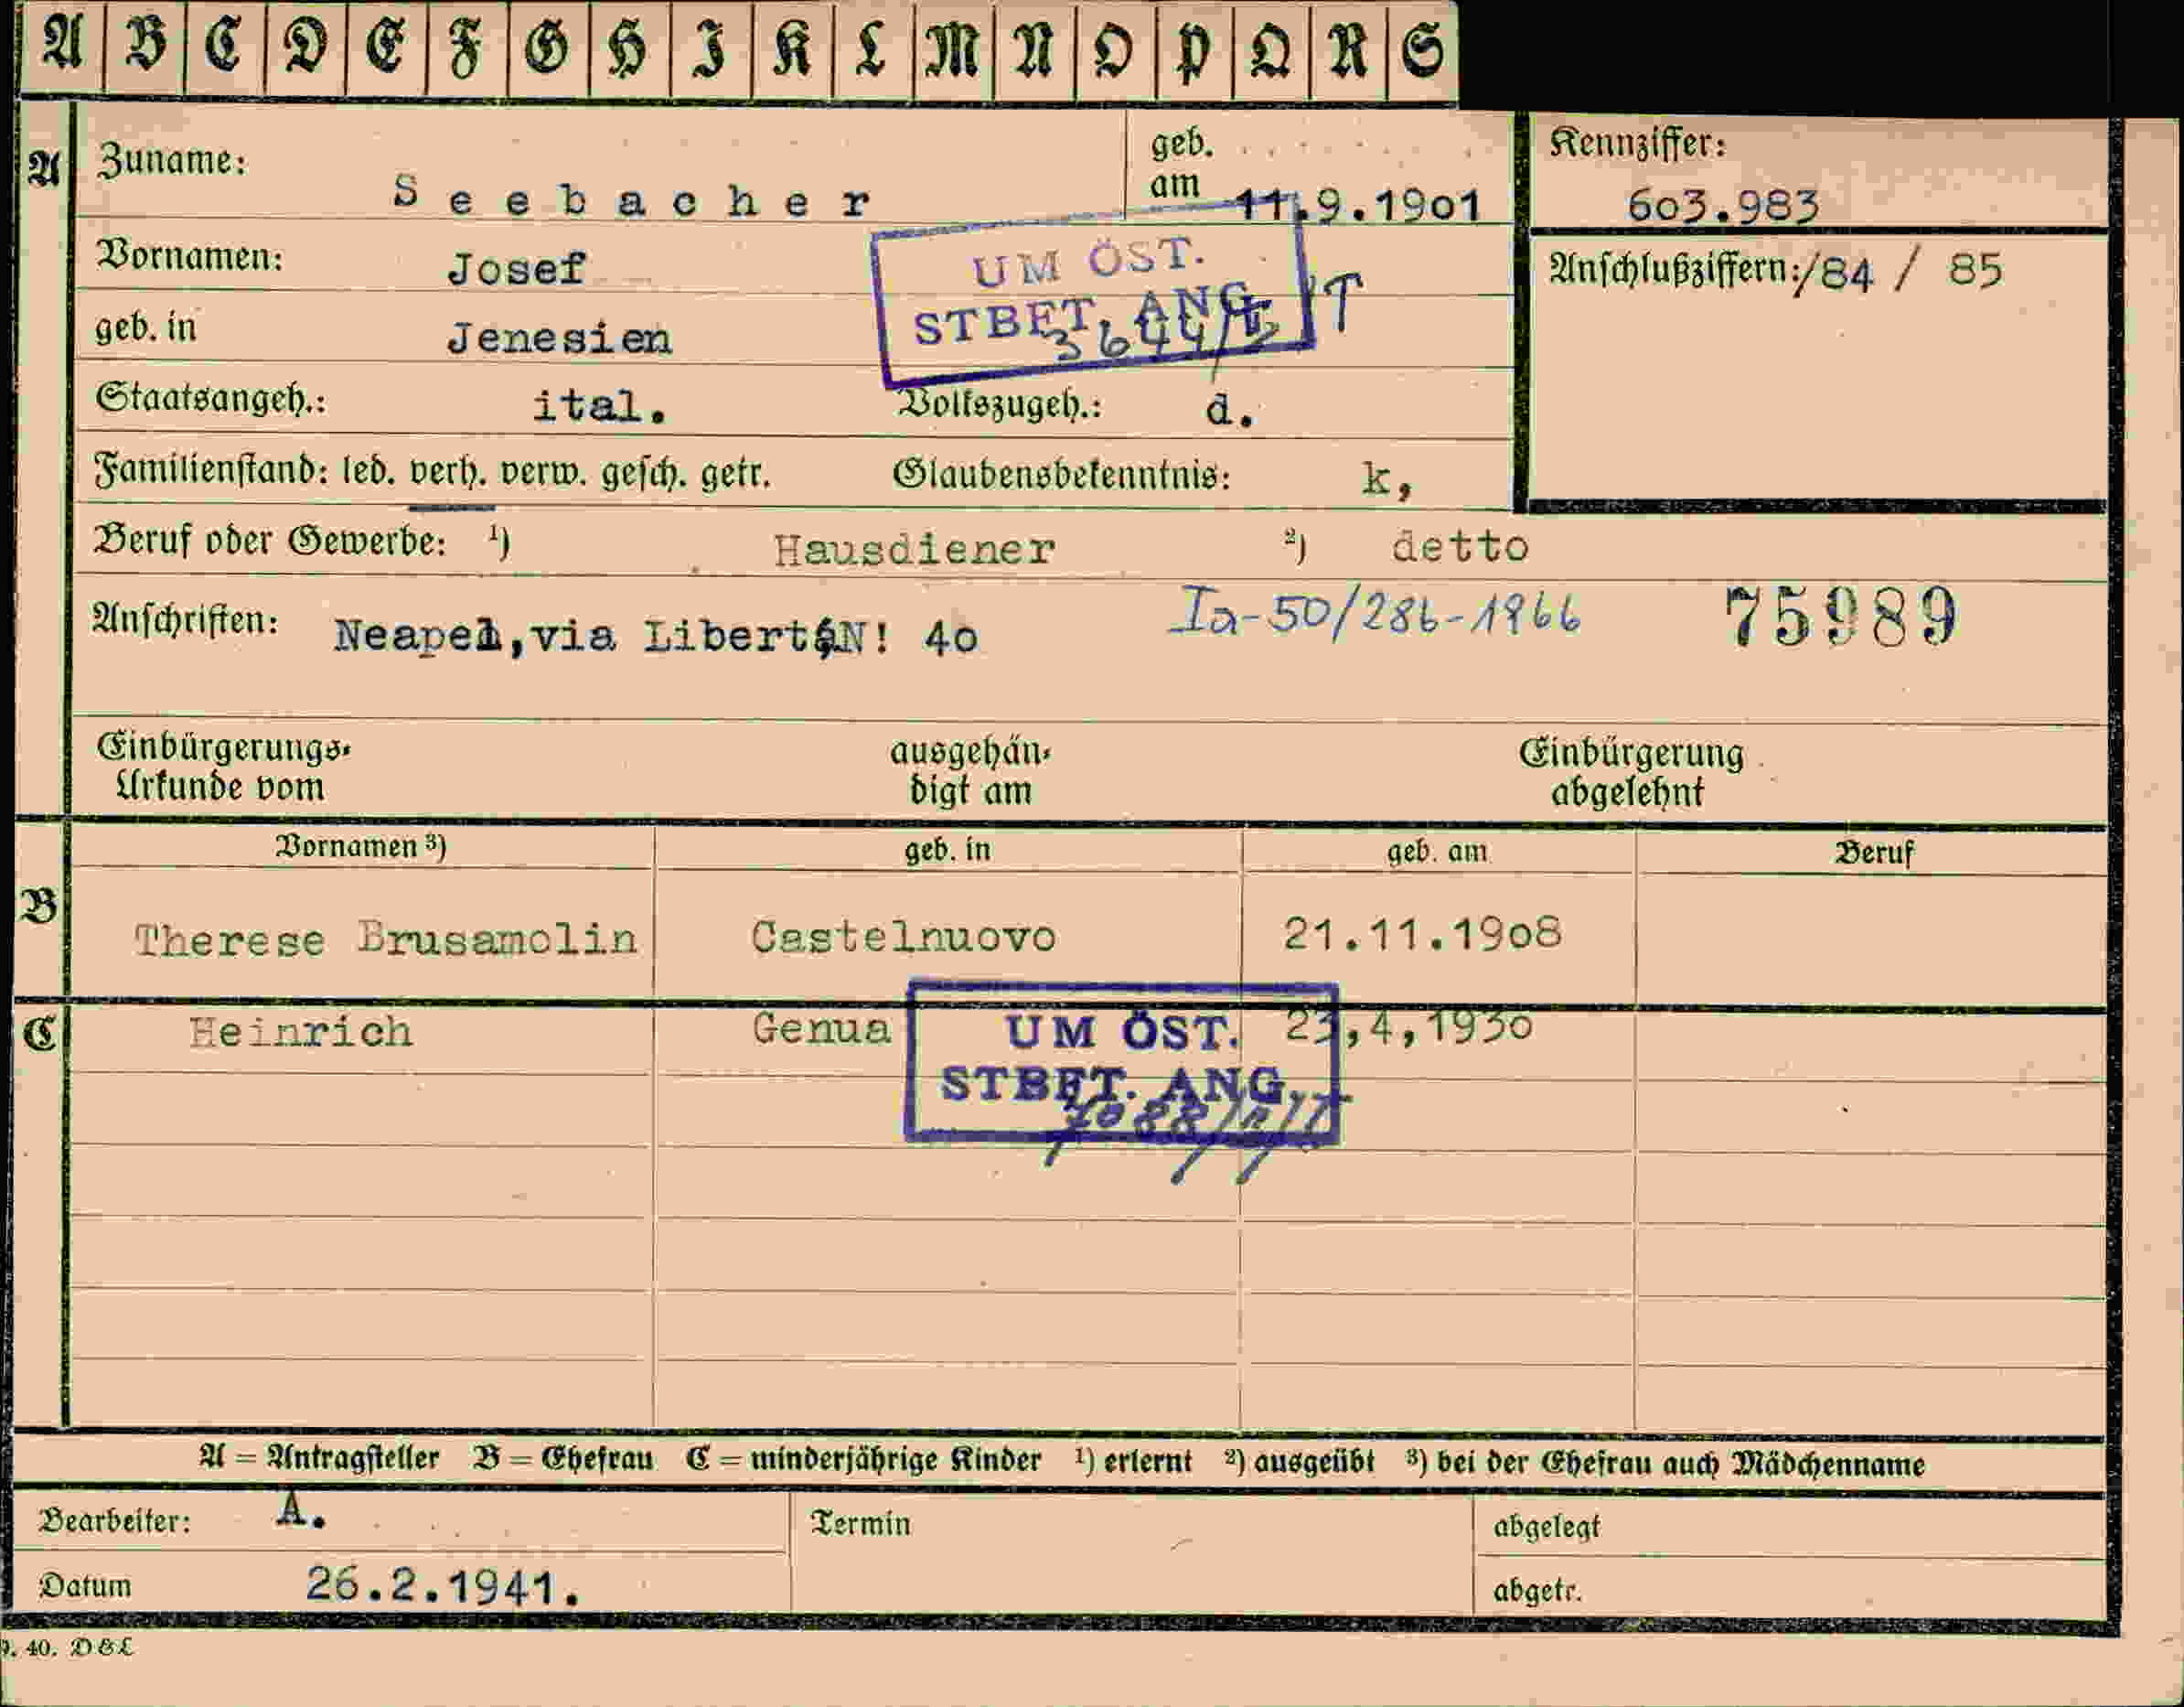 A B C D E F G H I K L M N O P Q R S
A Zuname: Seebacher geb. am 11.9.1901
Kennziffer: 603.983
Vornamen: Josef
Anschlußziffern:/84 / 85
UM ÖST.
STBET. ANG.
geb. in Jenesien
Staatsangeh.: ital. Volkszugeh.: d.
Familienstand: led. verh. verw. gesch. getr. Glaubensbekenntnis: k,
Beruf oder Gewerbe: ¹) Hausdiener ²) detto
Anschriften: Neapel,via Libertá N! 40 Ia-50/286-1966 75989
Einbürgerungs- ausgehän- Einbürgerung
Urkunde vom digt am abgelehnt
Vornamen ³) geb. in geb. am Beruf
B Therese Brusamolin Castelnuovo 21.11.1908
C Heinrich Genua 23,4,1930
UM ÖST.
STBET. ANG.
A = Antragsteller B = Ehefrau C = minderjährige Kinder ¹) erlernt ²) ausgeübt ³) bei der Ehefrau auch Mädchenname
Bearbeiter: A. Termin abgelegt
Datum 26.2.1941. abgetr.
40. D&L